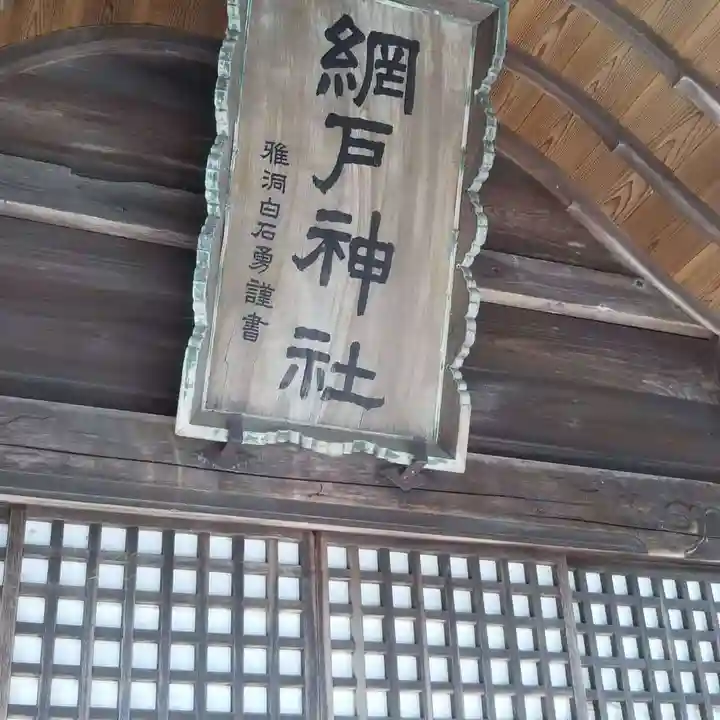 網戸神社
雅洞白石勇謹書